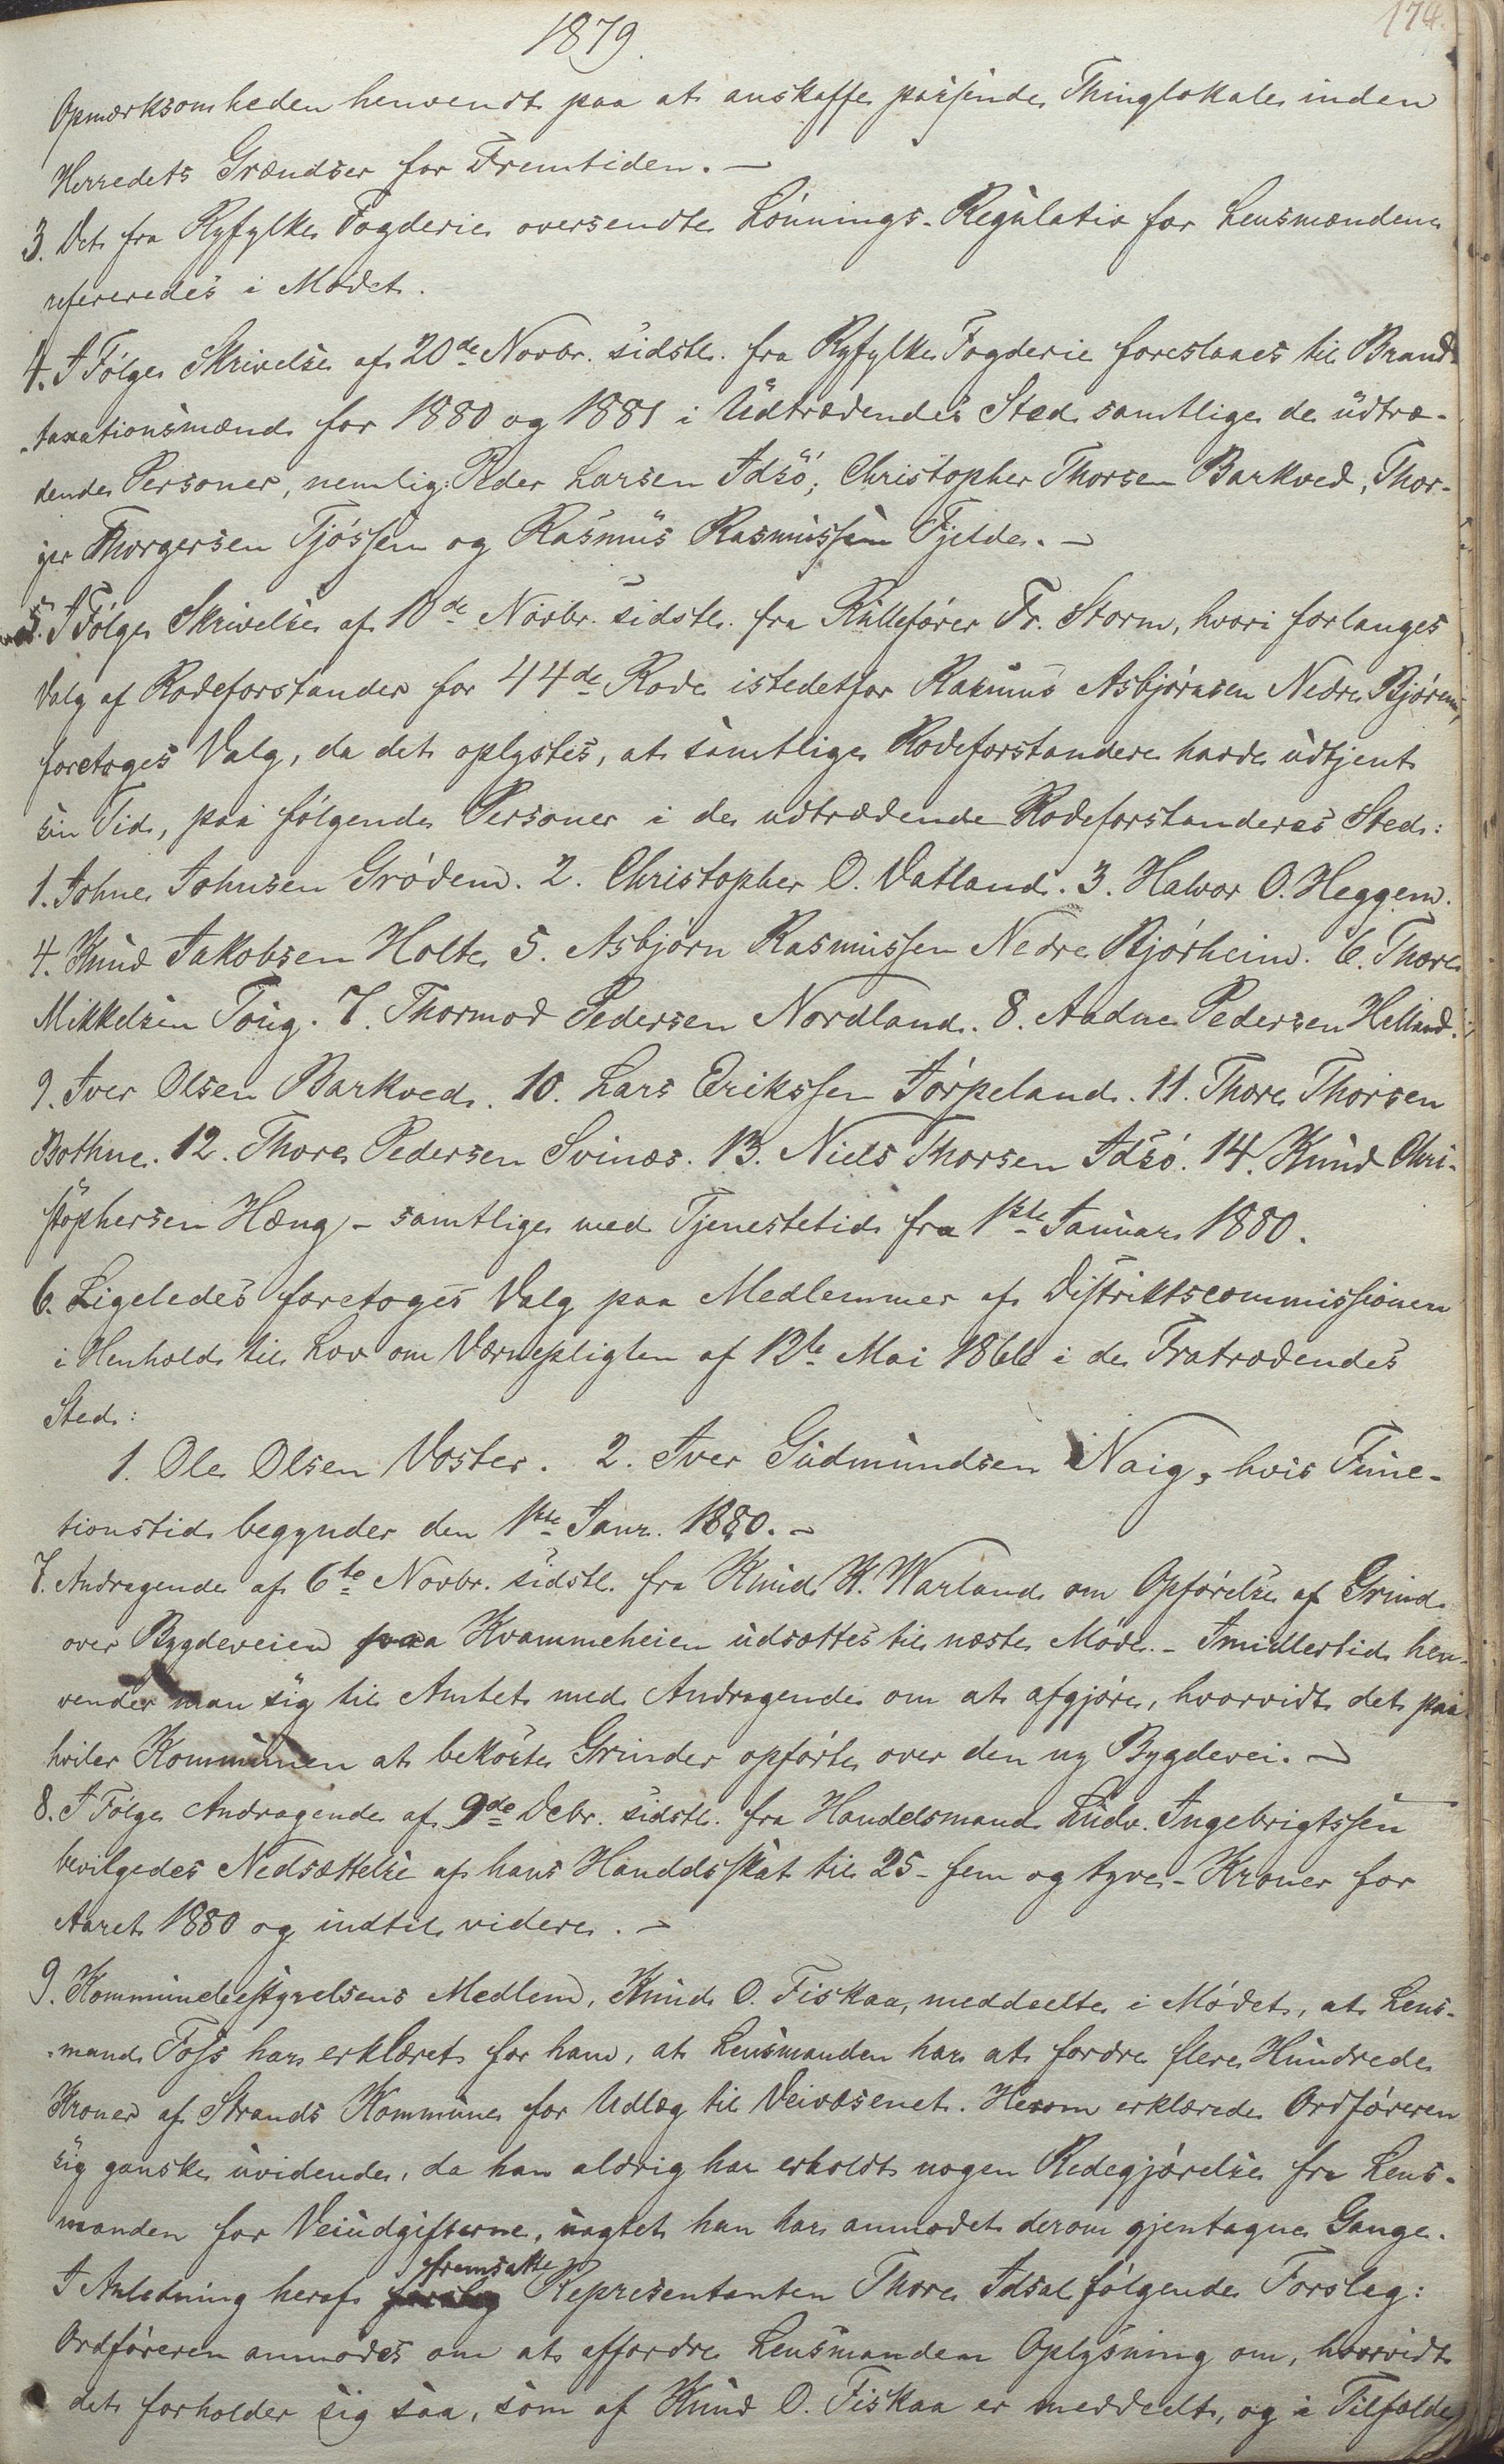 174.
1879.
Opmærksomheden henvendt paa at anskaffe passende Thinglokale inden
Herredets Grændser for Fremtiden. —
3. Det fra Ryfylke Fogderie oversendte Lønnings-Regulativ for Lensmændene
refereredes i Mødet.
4. I Følge Skrivelse af 20de Novbr. sidstl. fra Ryfylke Fogderie foreslaaes til Brand-
taxationsmænd for 1880 og 1881 i Udtrædendes Sted samtlige de udtræ-
dende Personer, nemlig: Peder Larsen Idsø, Christopher Thorsen Barkved, Thor-
ger Thorgersen Tjøssem og Rasmus Rasmussen Fjelde. —
5. I Følge Skrivelse af 18de Novbr. sidstl. fra Rullefører Fr. Storm, hvori forlanges
Valg af Rodeforstander for 44de Rode istedetfor Rasmus Asbjørnsen Nedre Bjørem,
foretoges Valg, da det oplystes, at samtlige Rodeforstandere havde udtjent
sin Tid, paa følgende Personer i de udtrædende Rodeforstanderes Sted:
1. Johne Johnsen Grødem. 2. Christopher O. Vatland. 3. Halvor O. Heggem.
4. Knud Jakobsen Holte 5. Asbjørn Rasmussen Nedre Bjørheim. 6. Thore
Mikkelsen Toug. 7. Thormod Pedersen Nordland. 8. Aadne Pedersen Helland.
9. Iver Olsen Barkved. 10. Lars Erikssen Jørpeland. 11. Thore Thorsen
Bothne. 12. Thore Pedersen Svinæs. 13. Niels Thorsen Idsø. 14. Knud Chri-
stophersen Hæng – samtlige med Tjenestetid fra 1ste Januar 1880.
6. Ligeledes foretoges Valg paa Medlemmer af Distriktscommissionen
i Henhold til Lov om Værnepligten af 12te Mai 1866 i de Fratrædendes
Sted:
1. Ole Olsen Voster. 2. Iver Gudmundsen Naig, hvis Func-
tionstid begynder den 1ste Janr. 1880. —
7. Andragende af 6te Novbr. sidstl. fra Knud K. Warland om Opførelse af Grind
over Bygdeveien paa Kvammeheien udsættes til næste Møde. – Imidlertid hen-
vender man sig til Amtet med Andragende om at afgjøre, hvorvidt det paa-
hviler Kommunen at bekoste Grinder opførte over den ny Bygdevei. —
8. I Følge Andragende af 9de Debr. sidstl. fra Handelsmand Ludv. Ingebrigtssen
bevilgedes Nedsættelse af hans Handelsskat til 25 – fem og tyve – Kroner for
Aaret 1880 og indtil videre. —
9. Kommunebestyrelsens Medlem, Knud O. Fiskaa, meddeelte i Mødet, at Lens-
mand Foss har erklæret for ham, at Lensmanden har at fordre flere Hundrede
Kroner af Strands Kommune for Udlæg til Veivæsenet. Herom erklærede Ordføreren
sig ganske uvidende, da han aldrig har erholdt nogen Redegjørelse fra Lens-
manden for Veiudgifterne, uagtet han har anmodet derom gjentagne Gange.
I Anledning heraf fremsatte Representanten Thore Idsal følgende Forslag:
Ordføreren anmodes om at affordre Lensmanden Oplysning om, hvorvidt
det forholder sig saa, som af Knud O. Fiskaa er meddeelt, og i Tilfælde